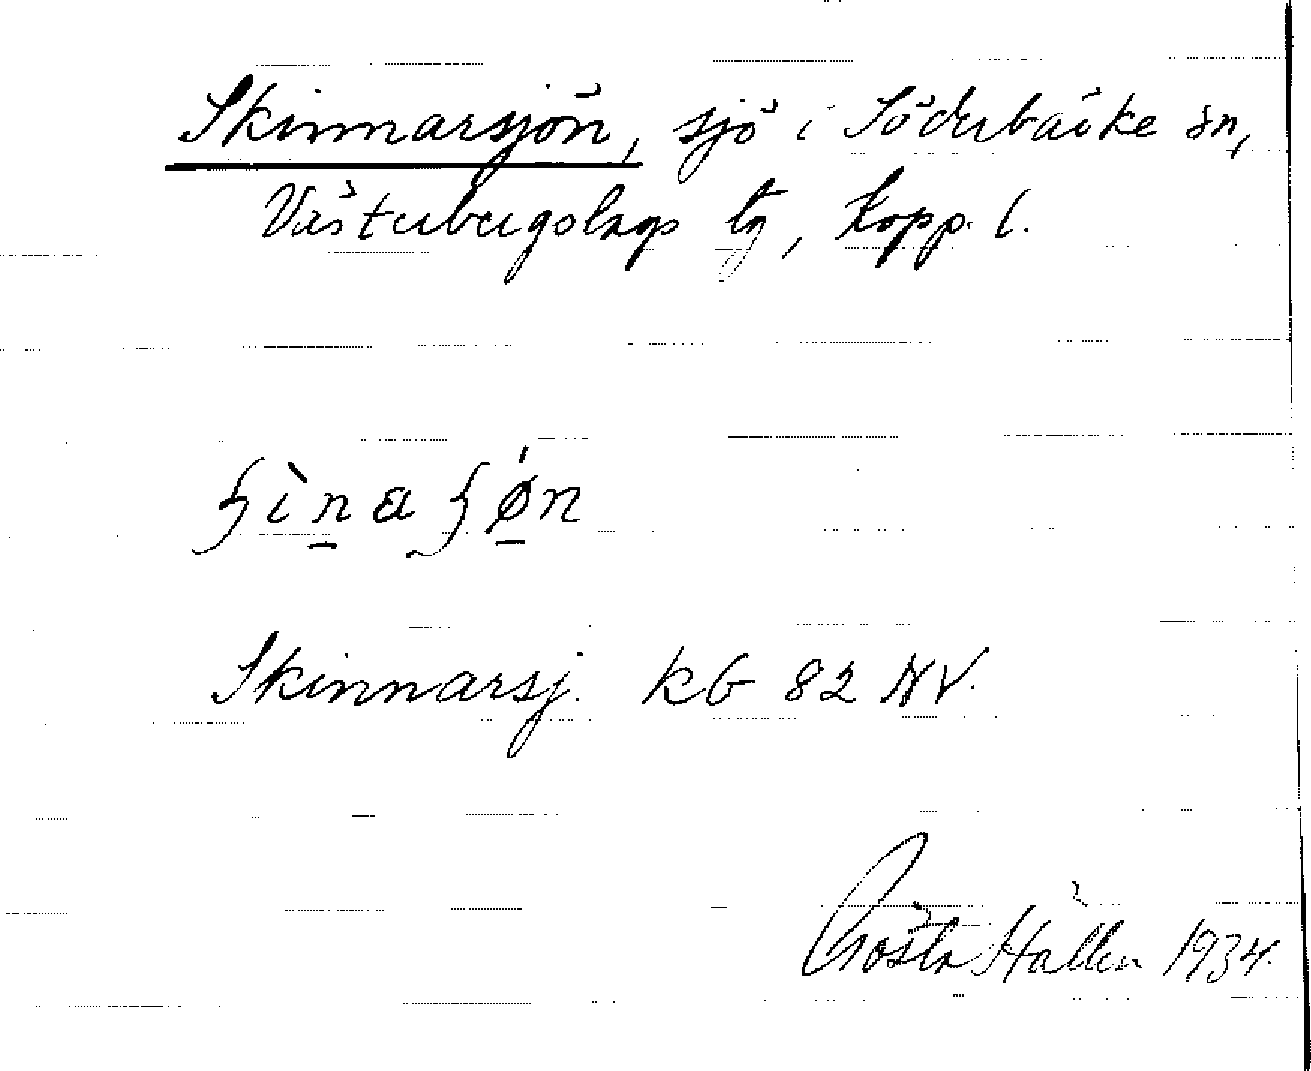 Skinnarsjön, sjö i Söderbärke sn,
Västerbergslags tg, Kopp. l.
Skinnarsj. kb 82 NV.
Gösta Hallén 1934.